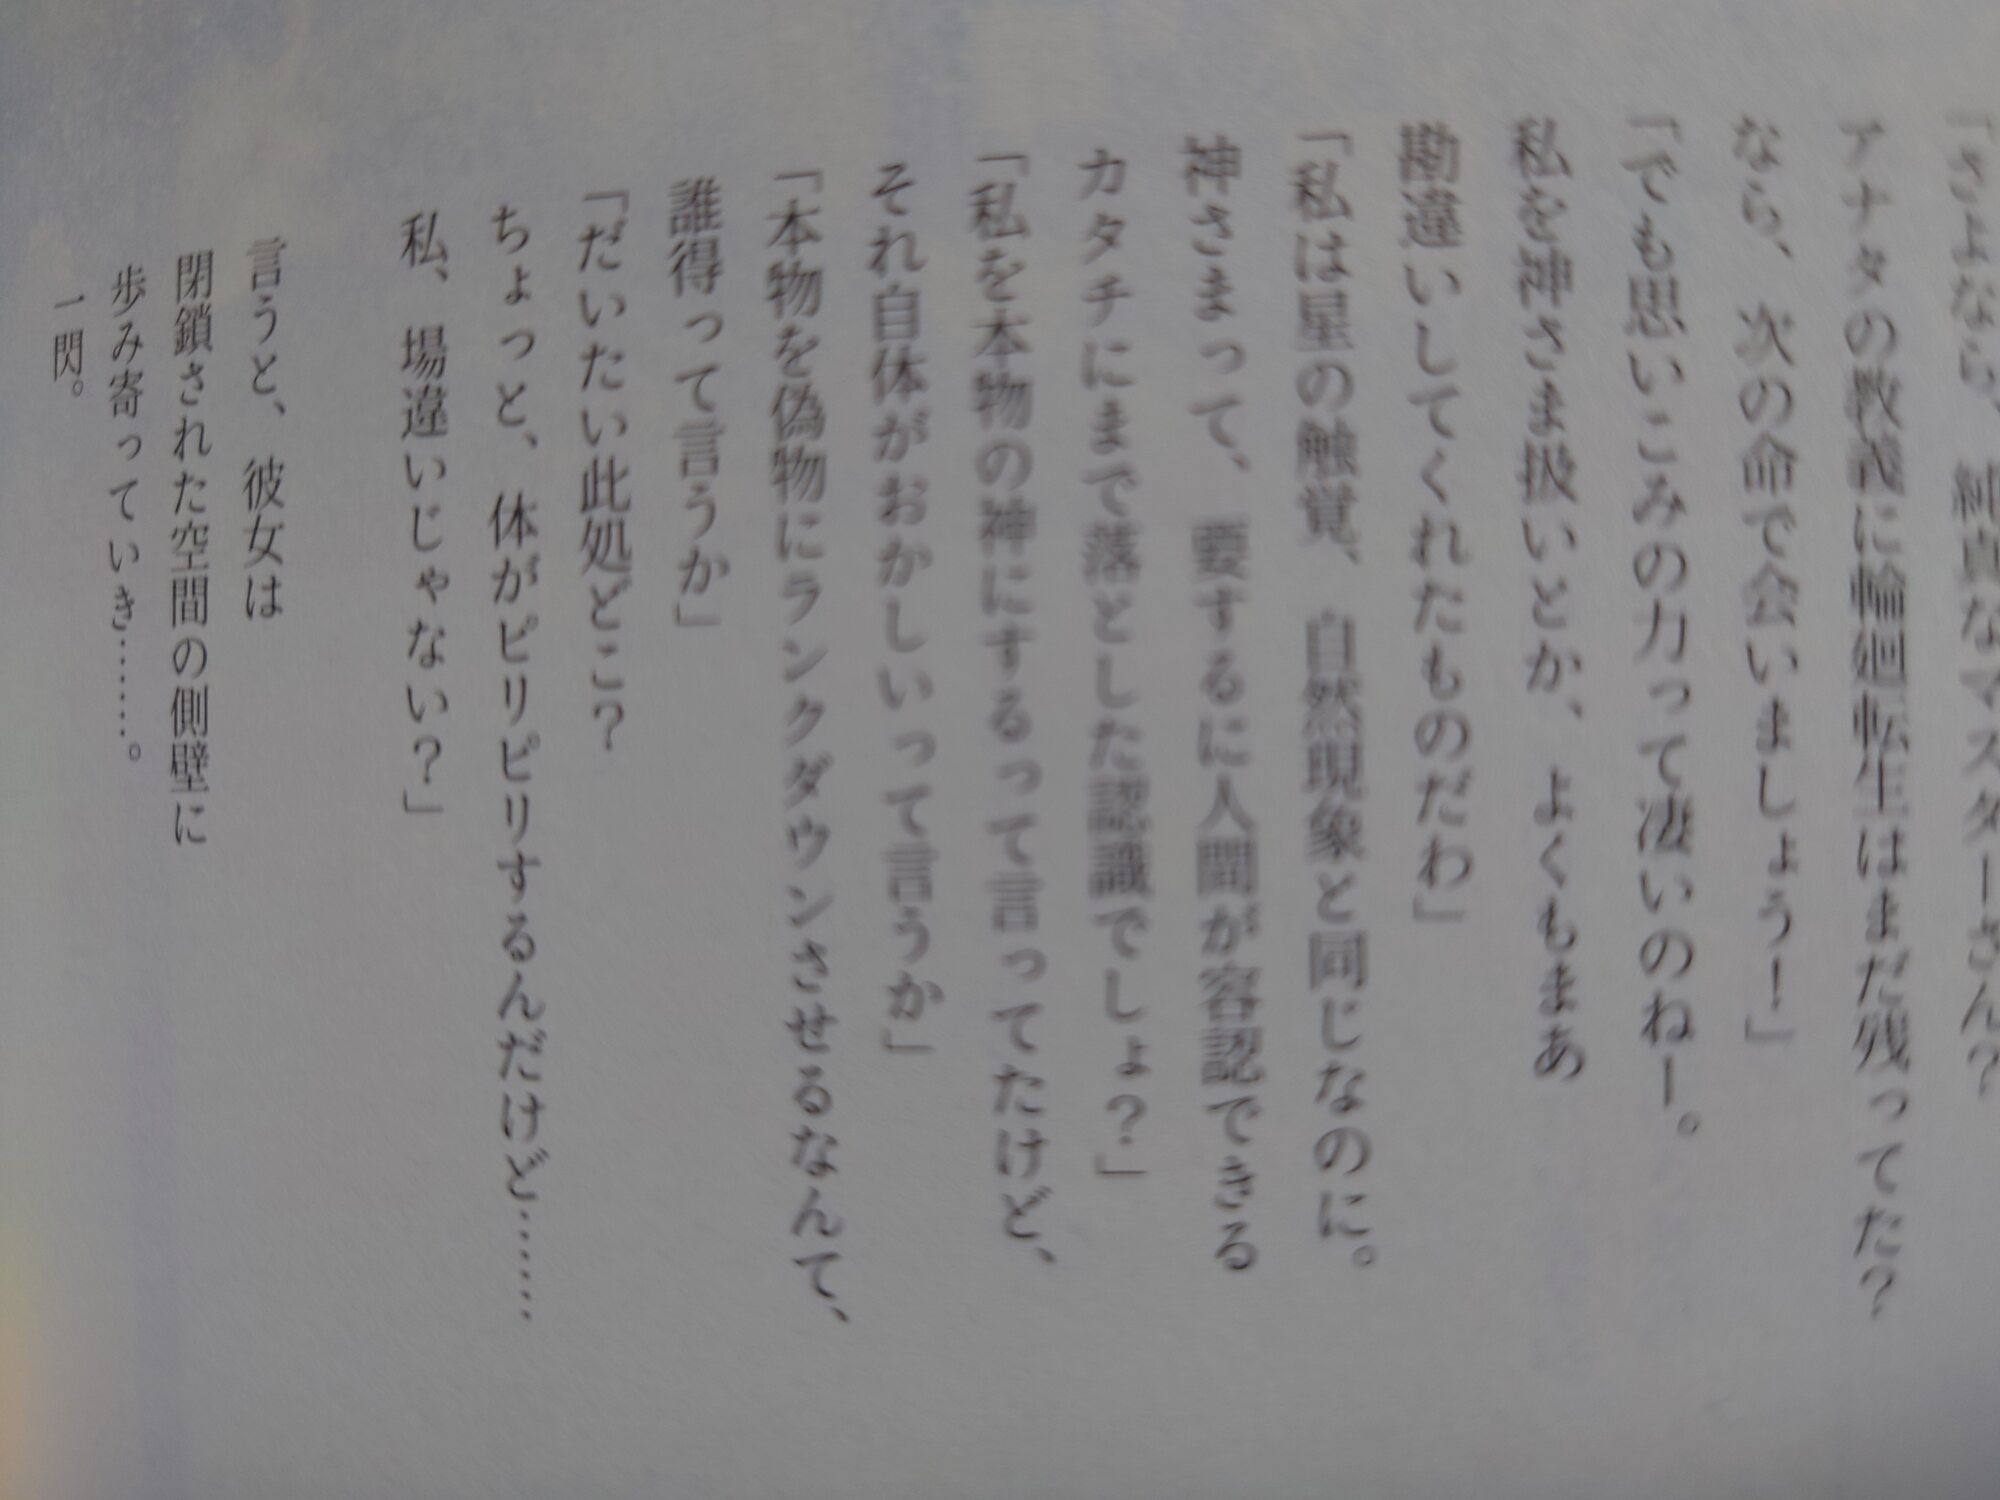 「さよなら、純真なマスターさん？
アナタの教義に輪廻転生はまだ残ってた？
なら、次の命で会いましょう！」
「でも思いこみの力って凄いのねー。
私を神さま扱いとか、よくもまあ
勘違いしてくれたものだわ」
「私は星の触覚、自然現象と同じなのに。
神さまって、要するに人間が容認できる
カタチにまで落とした認識でしょ？」
「私を本物の神にするって言ってたけど、
それ自体がおかしいって言うか」
「本物を偽物にランクダウンさせるなんて、
誰得って言うか」
「だいたい此処どこ？
ちょっと、体がピリピリするんだけど……
私、場違いじゃない？」
言うと、彼女は
閉鎖された空間の側壁に
歩み寄っていき………。
一閃。